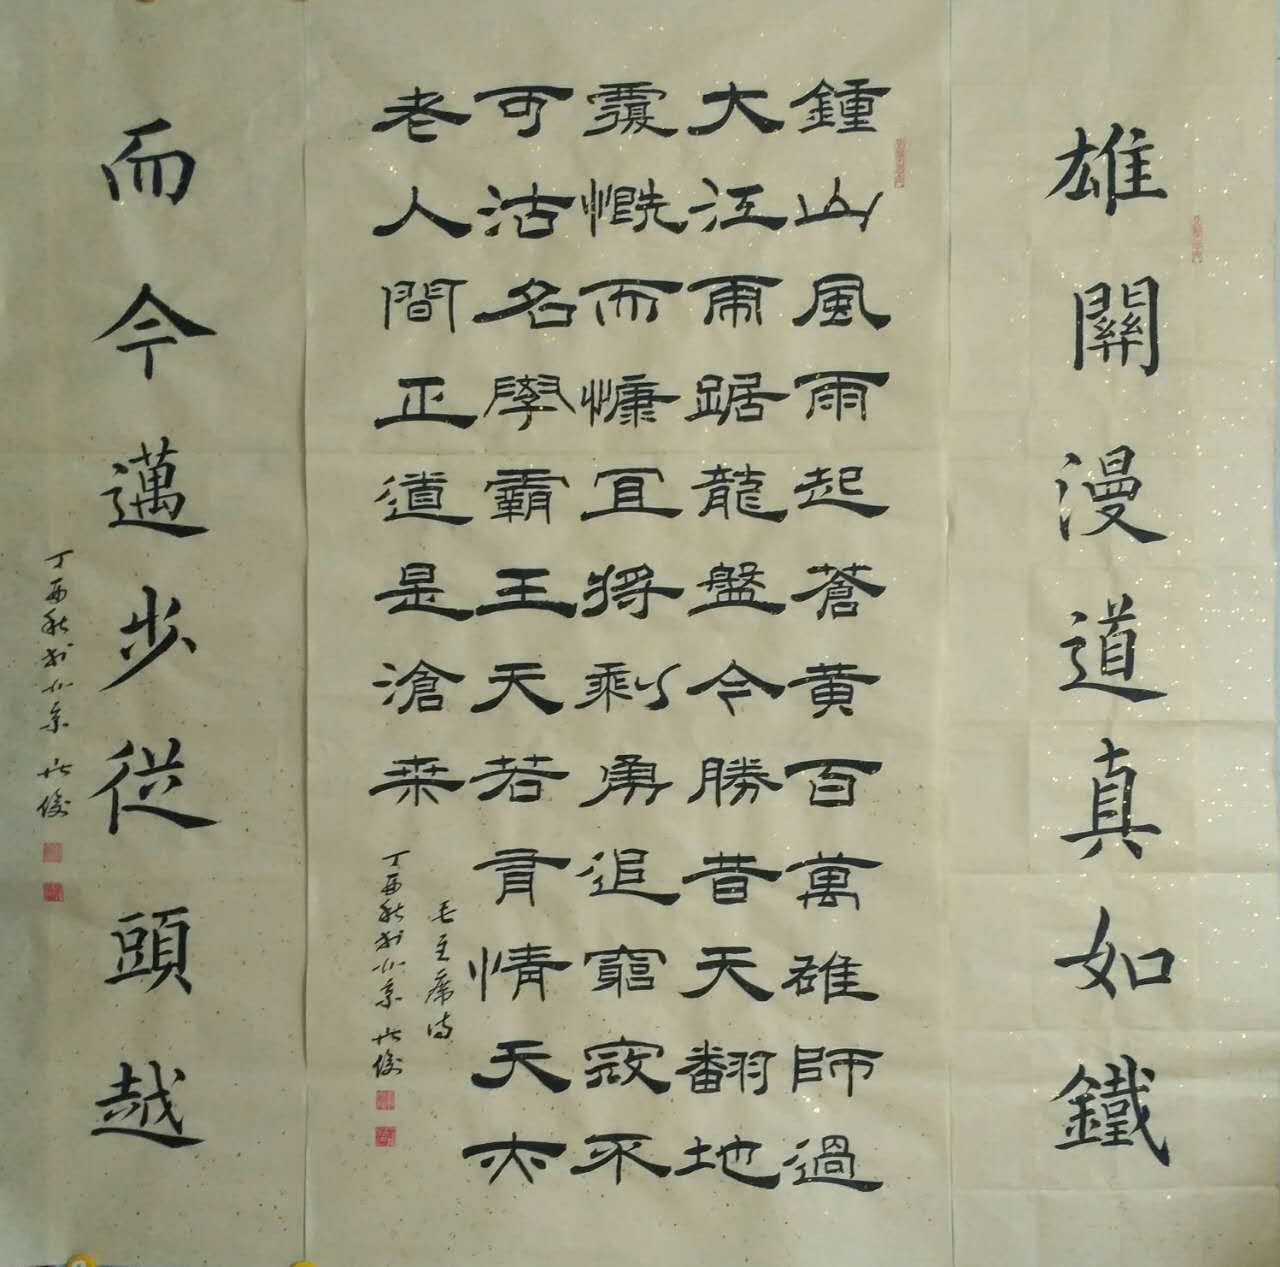 雄關漫道真如鐵
鍾山風雨起蒼黃百萬雄師過
大江虎踞龍盤今勝昔天翻地
覆慨而慷宜將剩勇追窮寇不
可沽名學霸王天若有情天亦
老人間正道是滄桑
毛主席诗
丁酉秋书北京 俊
而今邁步從頭越
丁酉秋书北京 俊